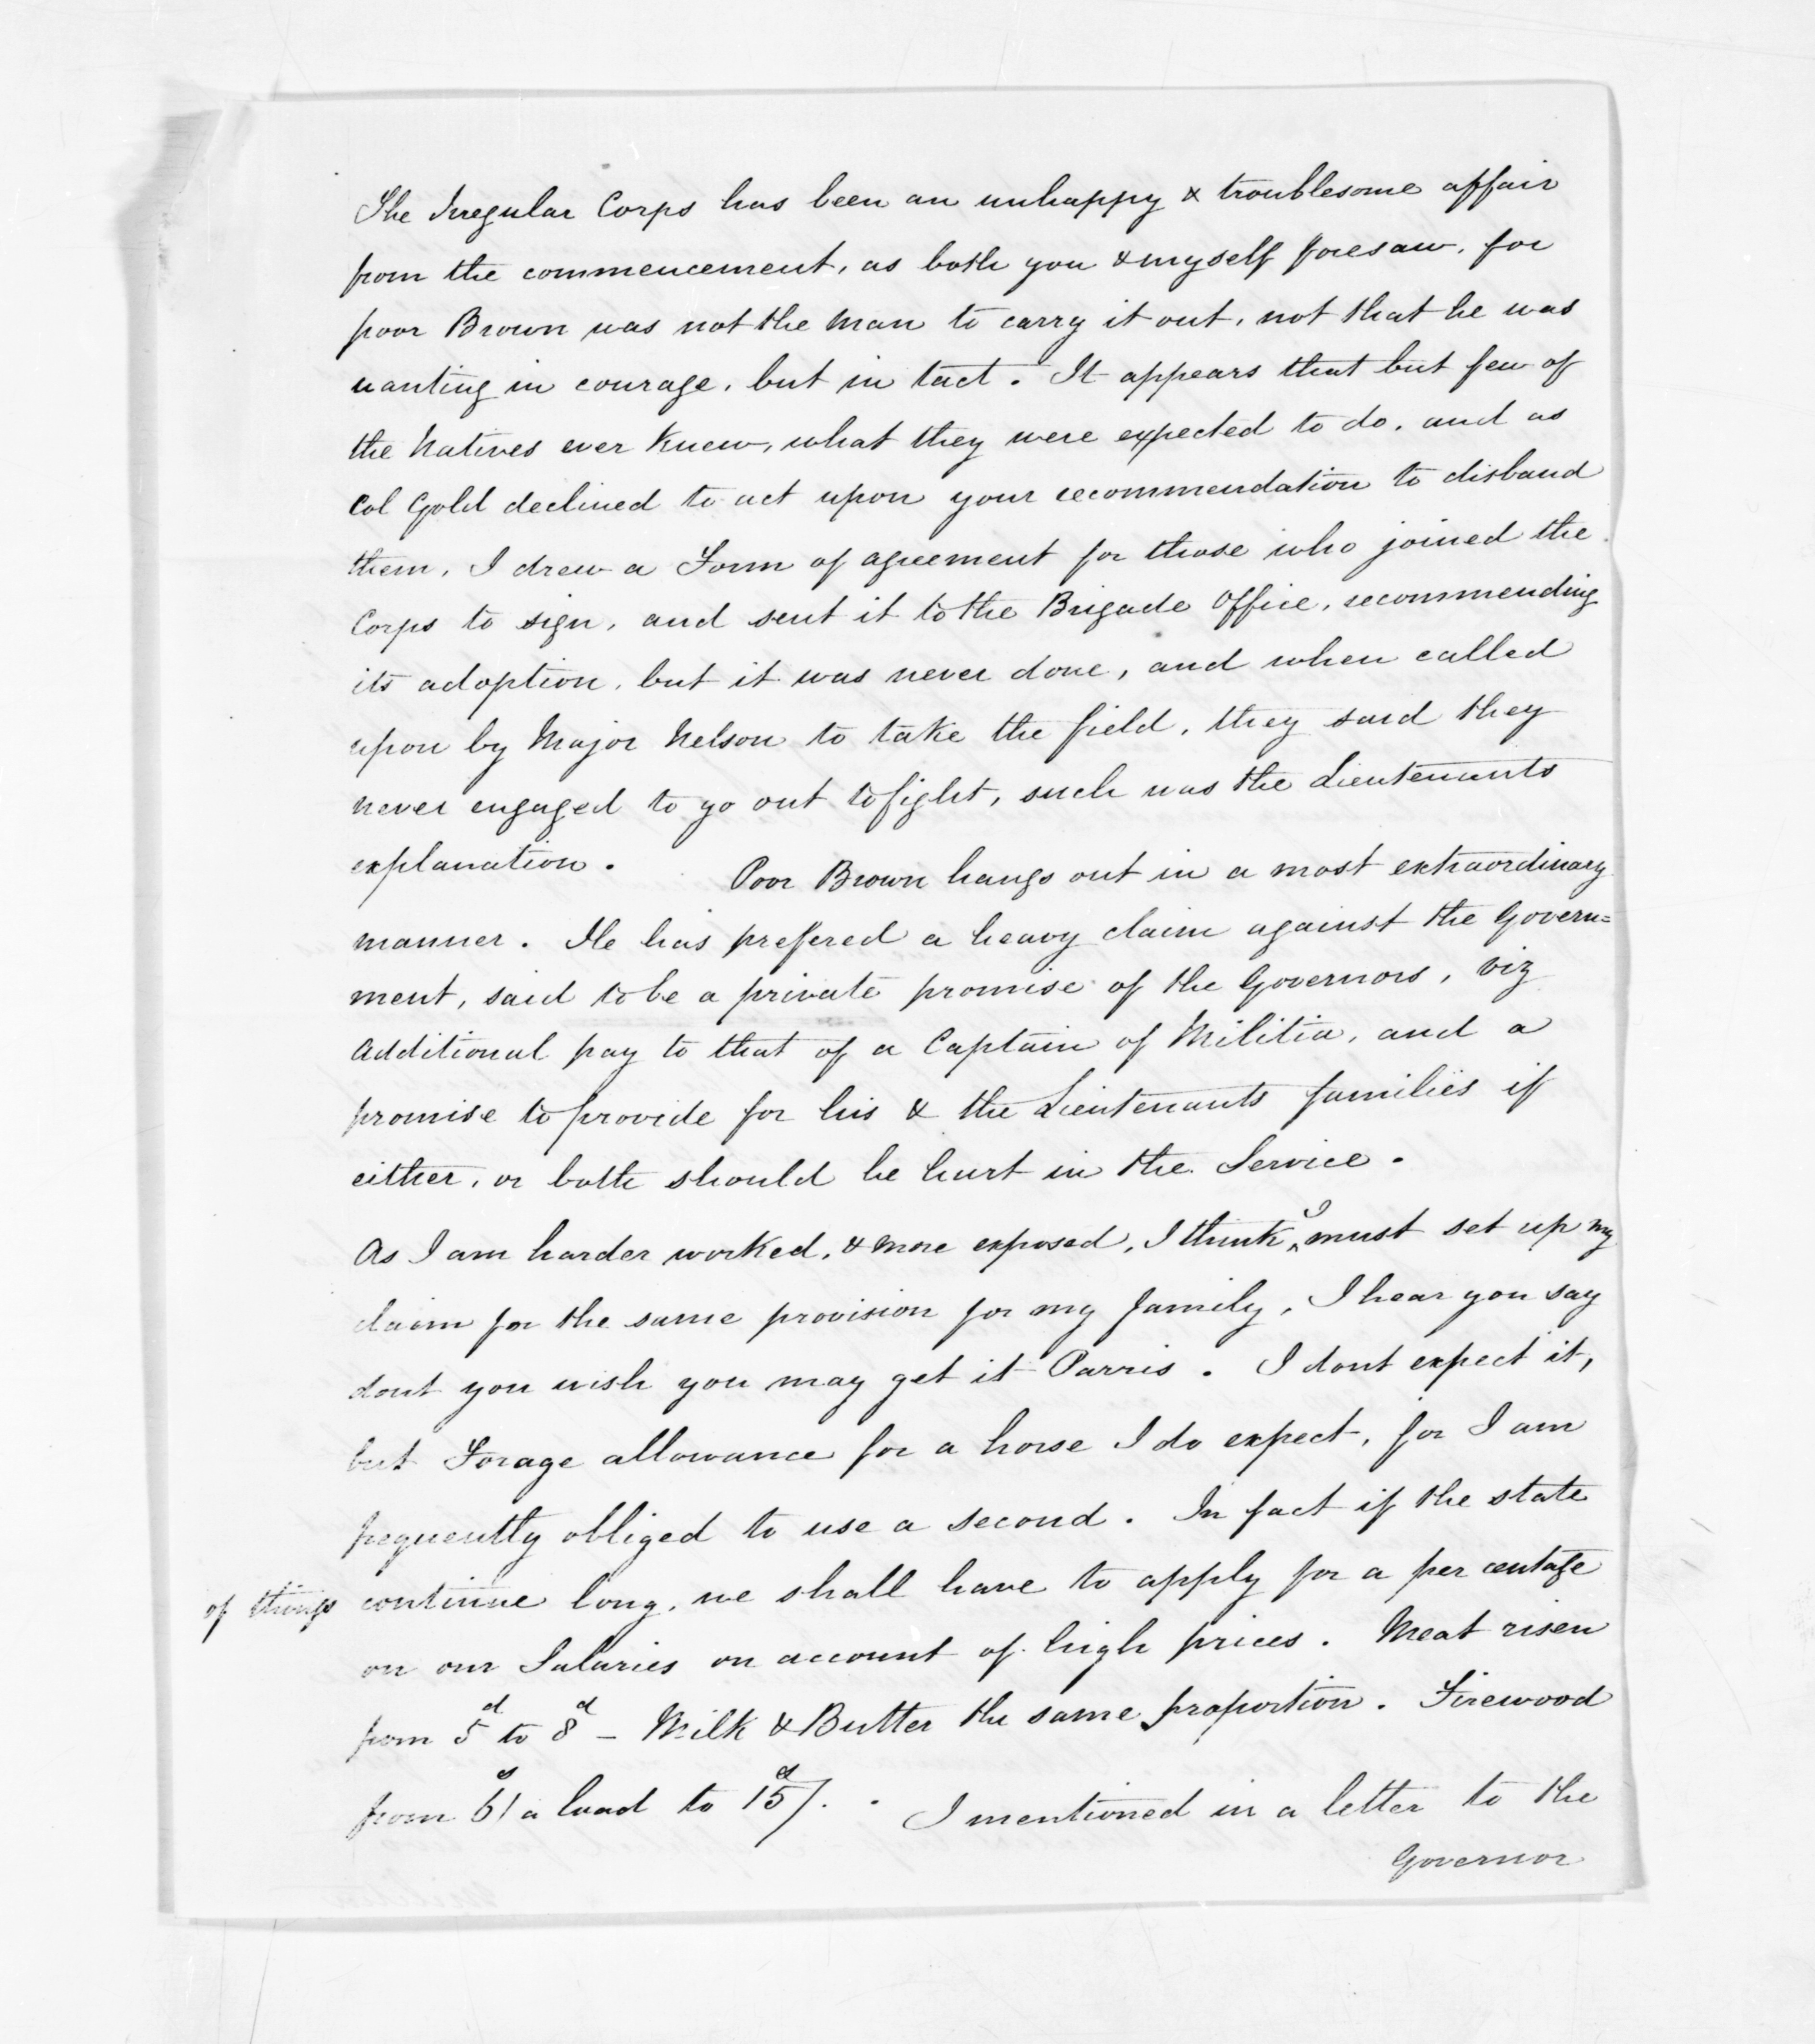 The Irregular Corps has been an unhappy & troublesome affair
from the commencement, as both you & myself foresaw, for
poor Brown was not the man to carry it out, not that he was
wanting in courage, but in tact. It appears that but few of
the Natives ever knew, what they were expected to do, and as
Col Gold declined to act upon your recommendation to disband
them, I drew a Form of agreement for those who joined the
Corps to sign, and sent it to the Brigade Office, recommending
its adoption, but it was never done, and when called
upon by Major Nelson to take the field, they said they
never engaged to go out to fight, such was the Lieutenants
explanation. Poor Brown hangs out in a most extraordinary
manner. He has prefered a heavy claim against the Govern=
ment, said to be a private promise of the Governors, viz
Additional pay to that of a Captain of Militia, and a
promise to provide for his & the Lieutenants families if
either, or both should be hurt in the Service.
As I am harder worked, & more exposed, I think I must set up my
claim for the same provision for my family, I hear you say
dont you wish you may get it Parris. I dont expect it,
but Forage allowance for a horse I do expect, for I am
frequently obliged to use a second. In fact if the state
of things continue long, we shall have to apply for a per centage
on our Salaries on account of high prices. Meat risen
from 5d to 8d - Milk & Butter the same proportion. Firewood
from 6/ a load to 15/. . I mentioned in a letter to the
Governor